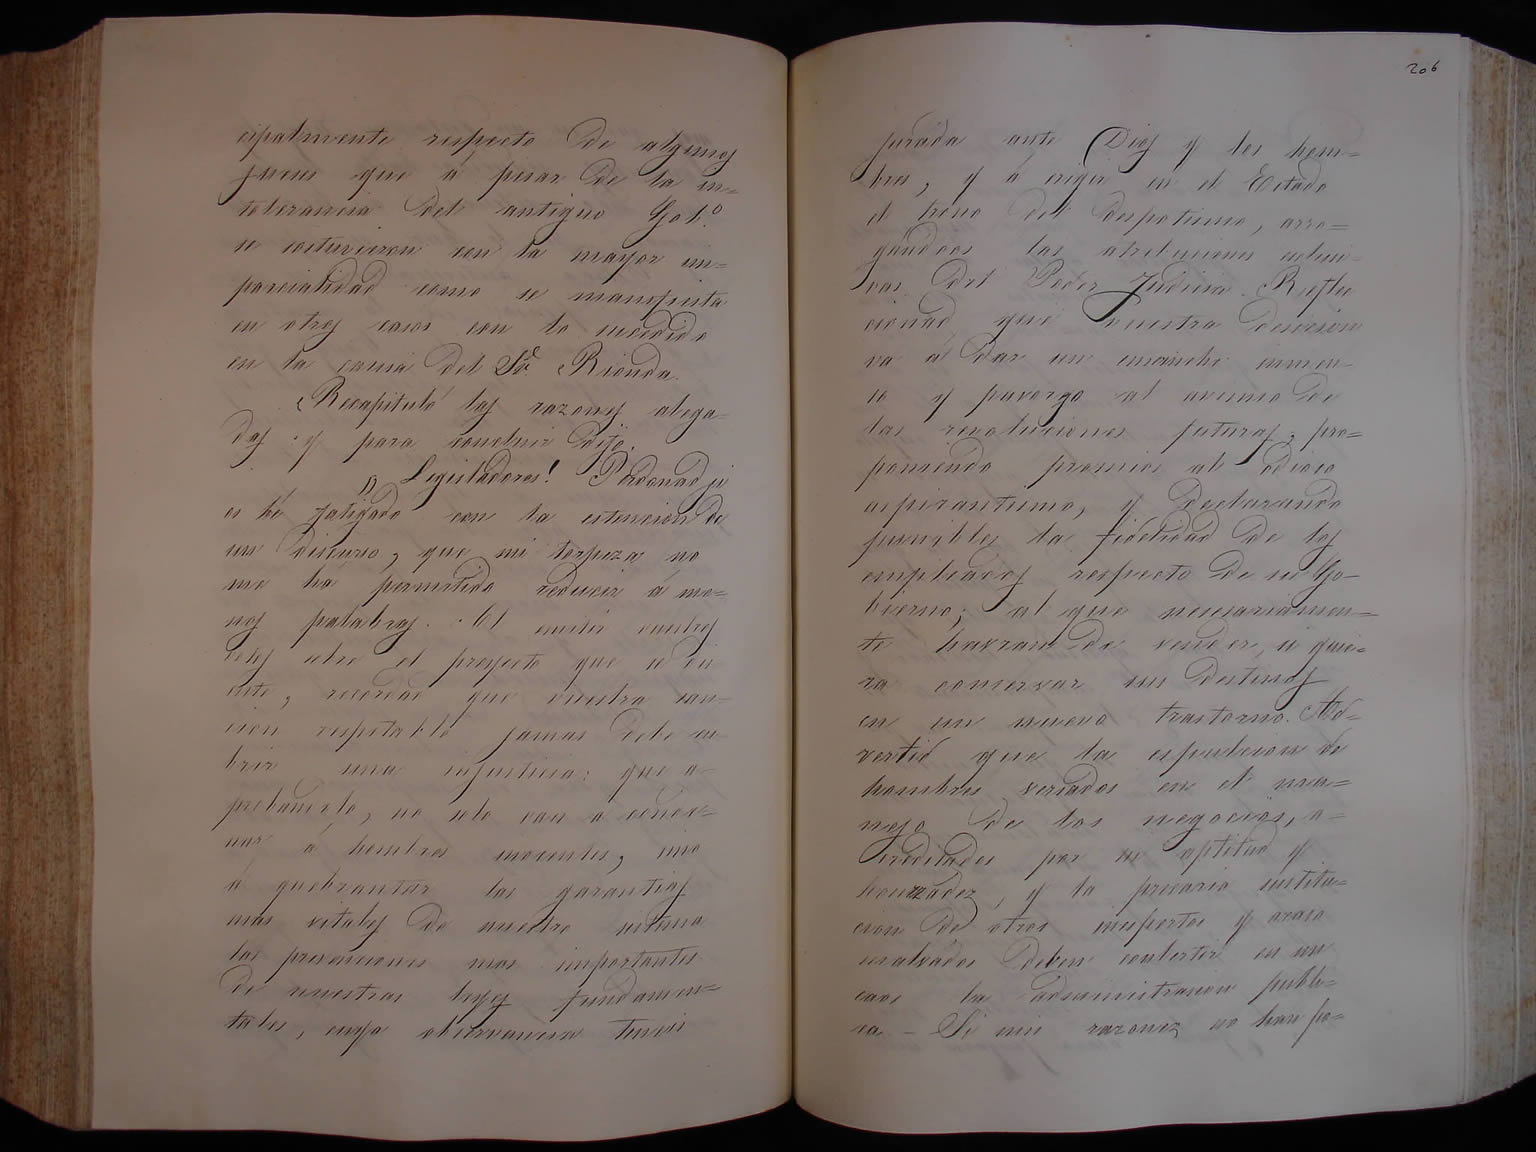 cipalmente respecto de algunos
jueces que á pesar de la in=
tolerancia del antiguo Gob.º
se costuvieron con la mayor im=
parcialidad como se manifiesta
en otros casos con lo sucedido
en la causa del Sr. Rionda.
Recapituló las razones alega-
das y para concluir dijo:
"Legisladores! Perdonad si
os hé fatigado con la estencion de
un discurso, que mi torpeza no
me há permitido reducir á me-
nos palabras. Al emitir vuestros
votos sobre el proyecto que se dis
cute, recordad que vuestra san-
cion respetable jamas debe cu-
brir una injusticia: que a-
probandolo, no solo vais a conde-
nar á hombres inocentes, sino
á quebrantar las garantias
mas vitales de nuestro sistema
las prevenciones mas importantes
de nuestras leyes fundamen=
tales, cuya observancia teneis
206
jurada ante Dios y los hom=
bres, y á erigir en el Estado
el trono del despotismo, arro=
gándoos las atribuciones esclusi-
vas del Poder Judicial. Reflec
cionad que vuestra decision
va á dar un ensanche inmen-
so y pavoroso al avenido de
las revoluciones futuras, pro=
poniendo premios al odioso
aspirantismo, y declarando
punible la fidelidad de los
empleados respecto de su Go-
bierno; al que necesariamen=
te havran de vender, si quie=
ra conservar sus destinos
en un nuevo trastorno. Ad=
vertid que la espulsion de
hombres versados en el ma=
nejo de los negocios, a=
creditados por su aptitud y
honrradez, y la precaria institu=
cion de otros inespertos y acaso
malvados deben convertir en un
caos la administracion publi=
ca — Si mis razones no han po=